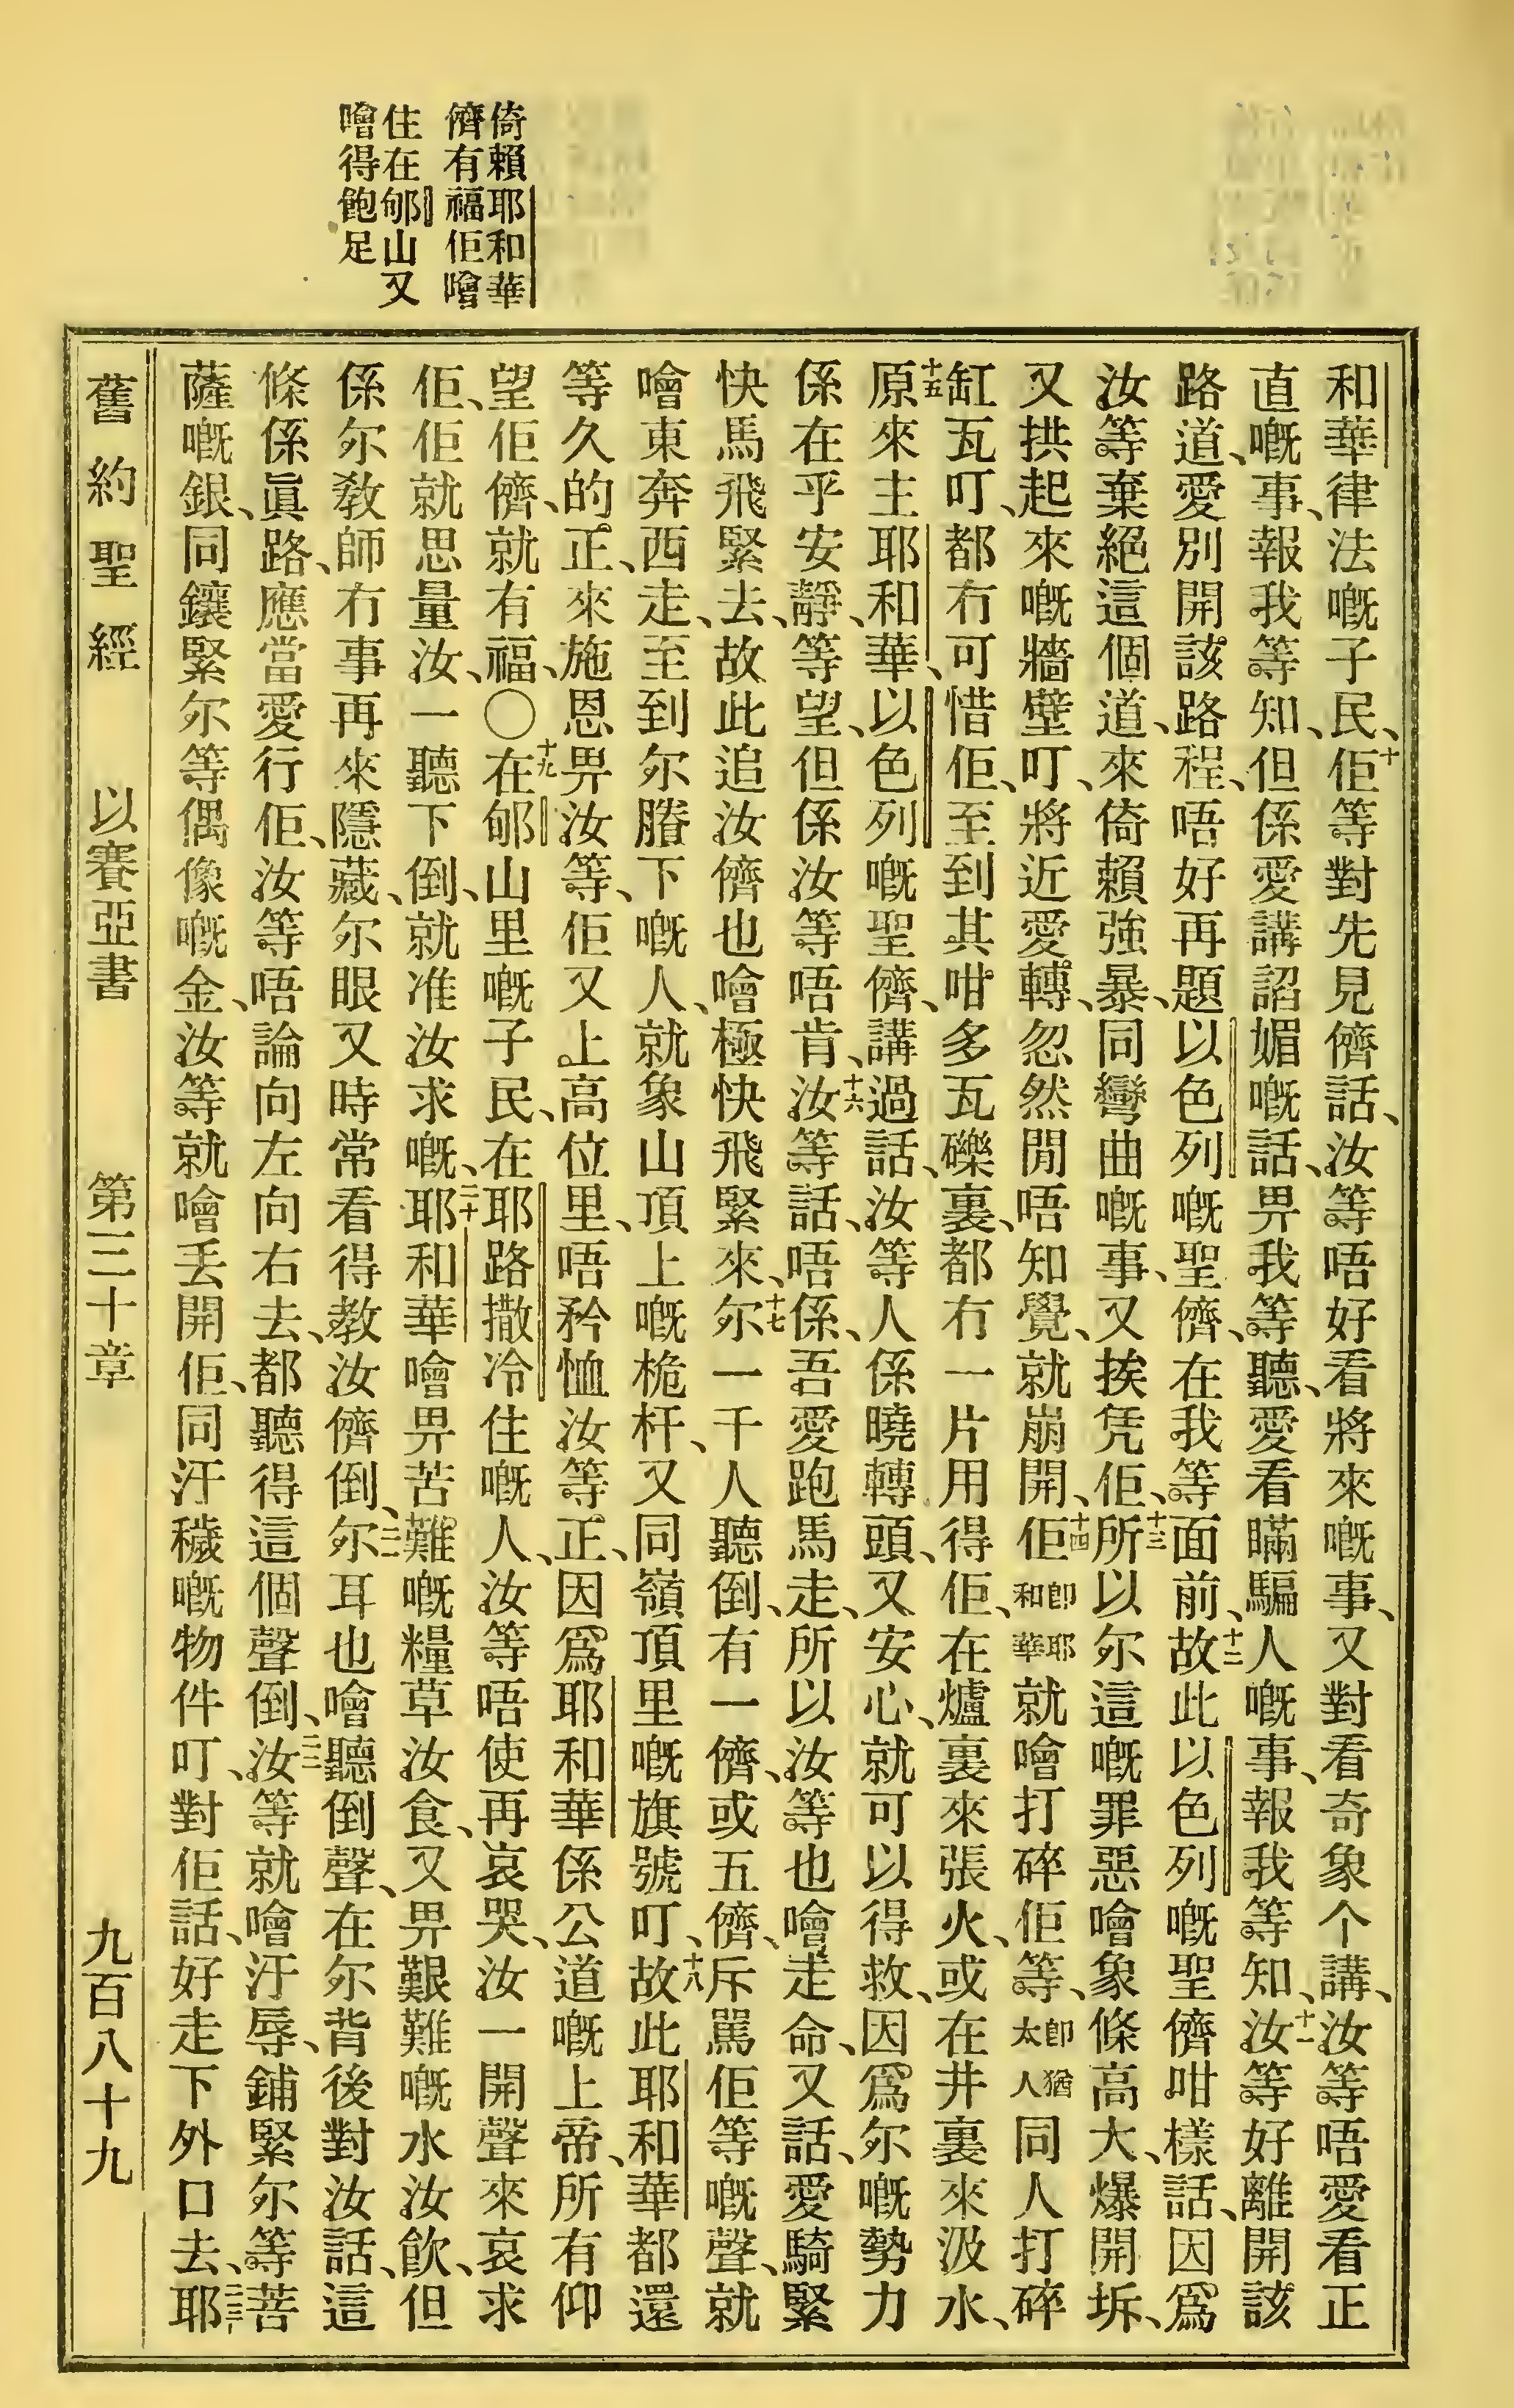 倚賴耶和華
儕有福佢噲
住在郇山又
噲得飽足
和華律法嘅子民、十佢等對先見儕話、汝等唔好看將來嘅事、又對看奇象个講、汝等唔愛看正
直嘅事、報我等知、但係愛講諂媚嘅話、畀我等聽、愛看瞞騙人嘅事、報我等知、十一汝等好離開該
路道、愛別開該路程、唔好再題以色列嘅聖儕、在我等面前、十二故此以色列嘅聖儕咁樣話、因爲
汝等棄絕這個道、來倚賴強暴、同彎曲嘅事、又挨凭佢、十三所以尔這嘅罪惡噲象條高大、爆開坼、
又拱起來嘅牆壁叮、將近愛轉、忽然間唔知覺、就崩開、十四佢卽耶和華就噲打碎佢等、卽猶太人同人打碎
缸瓦叮、都冇可惜佢、至到其咁多瓦礫裏、都冇一片用得佢、在爐裏來張火、或在井裏來汲水、
十五原來主耶和華、以色列嘅聖儕、講過話、汝等人係曉轉頭、又安心、就可以得救、因爲尔嘅勢力
係在乎安靜、等望、但係汝等唔肯、十六汝等話、唔係、吾愛跑馬走、所以汝等也噲走命、又話、愛騎緊
快馬飛緊去、故此追汝儕也噲極快飛緊來、十七尔一千人聽倒、有一儕、或五儕、斥罵佢等嘅聲、就
噲東奔西走、至到尔賸下嘅人、就象山頂上嘅桅杆、又同嶺頂里嘅旗號叮、十八故此耶和華都還
等久的正、來施恩畀汝等、佢又上高位里、唔矜恤汝等正、因爲耶和華係公道嘅上帝、所有仰
望佢儕、就有福、〇十九在郇山里嘅子民、在耶路撒冷住嘅人、汝等唔使再哀哭、汝一開聲來哀求
佢、佢就思量汝、一聽下倒、就准汝求嘅、二十耶和華噲畀苦難嘅糧草汝食、又畀艱難嘅水汝飲、但
係尔教師冇事再來隱藏、尔眼又時常看得教汝儕倒、二一尔耳也噲聽倒聲、在尔背後對汝話、這
條係眞路、應當愛行佢、汝等唔論向左向右去、都聽得這個聲倒、二二汝等就噲汙辱、鋪緊尔等菩
薩嘅銀、同鑲緊尔等偶像嘅金、汝等就噲丟開佢、同汙穢嘅物件叮、對佢話、好走下外口去、二三耶
舊約聖經 以賽亞書 第三十章 九百八十九